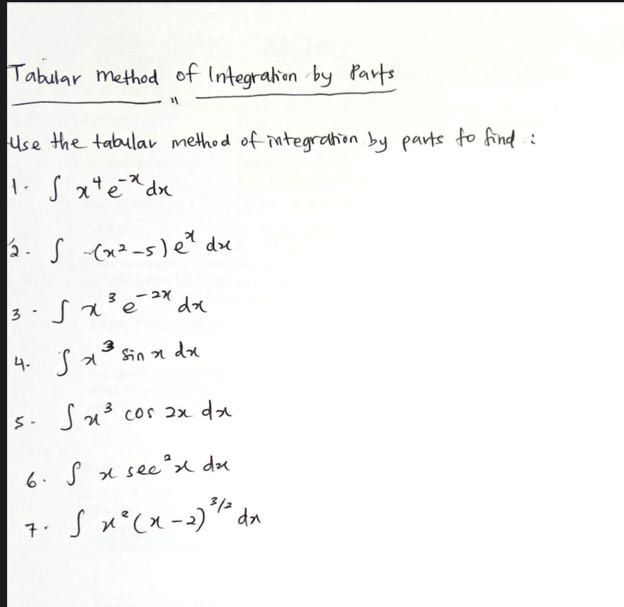 Tabular method of Integration by Parts
"
Use the tabular method of integration by parts to find :
1. ∫ x⁴e⁻ˣ dx
2. ∫ (x² –5) eˣ dx
3. ∫ x³e⁻²ˣ dx
4. ∫ x³ sin x dx
5. ∫ x³ cos 2x dx
6. ∫ x sec²x dx
7. ∫ x²(x –2)^3/2 dx